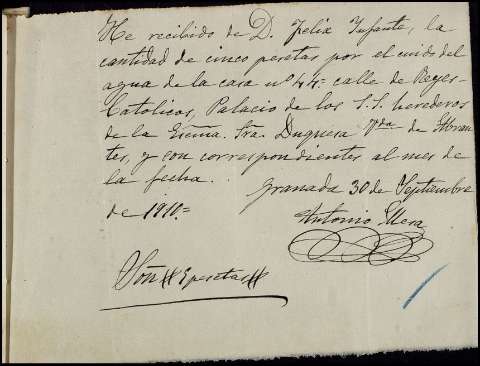 He recibido de D. Felix Infante, la
cantidad de cinco pesetas por el cuido del
agua de la casa nº 44= calle de Reyes-
Catolicos, Palacio de los S.S. herederos
de la Excma. Sra. Duquesa Vda de Abran-
tes, y son correspondientes al mes de
la fecha.
Granada 30 de Septiembre
de 1910.=
Antonio Mera
Son ## 5 pesetas ##